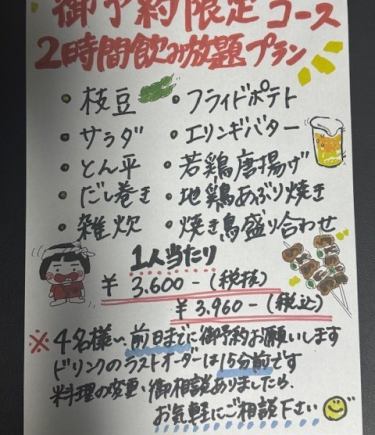 御予約限定コース
2時間飲み放題プラン
・枝豆 ・フライドポテト
・サラダ ・エリンギバター
・とん平 ・若鶏唐揚げ
・だし巻き ・地鶏あぶり焼き
・雑炊 ・焼き鳥盛り合わせ
1人当たり
¥3.600-(税抜)
¥3.960-(税込)
※4名様〜、前日までに御予約お願いします
ドリンクのラストオーダーは15分前です
料理の変更、御相談ありましたら、
お気軽にご相談下さい